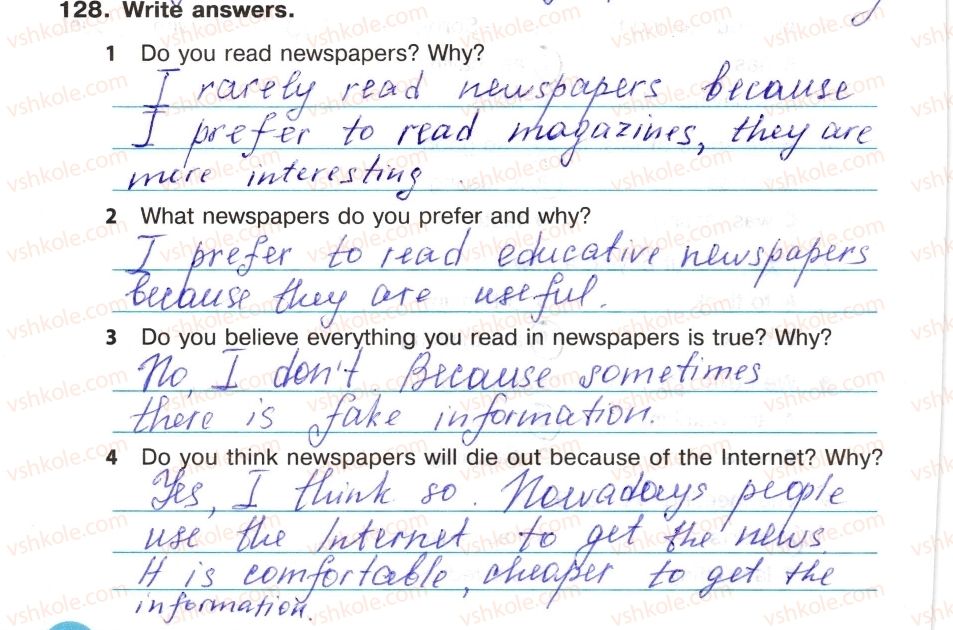 128. Write answers.
1 Do you read newspapers? Why?
I rarely read newspapers because
I prefer to read magazines, they are
more interesting.
2 What newspapers do you prefer and why?
I prefer to read educative newspapers
because they are useful.
3 Do you believe everything you read in newspapers is true? Why?
No, I don't. Because sometimes
there is fake information.
4 Do you think newspapers will die out because of the Internet? Why?
Yes, I think so. Nowadays people
use the Internet to get the news.
It is comfortable, cheaper to get the
information.
vshkole.com